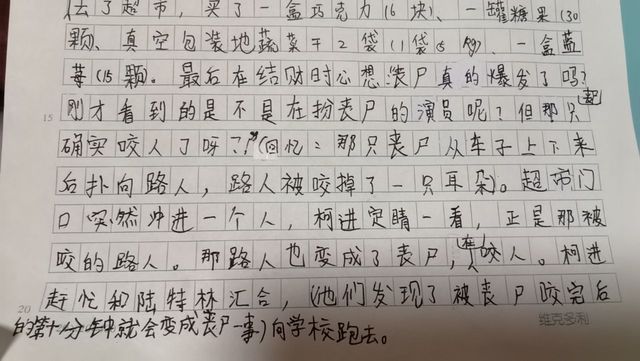 去了超市，买了一盒巧克力（6块）、一罐糖果（30
颗、真空包装地蔬菜干2袋（1袋5包）、一盒蓝
莓（15颗）。最后在结财时心想：丧尸真的爆发了吗？
15 刚才看到的是不是在扮丧尸的演员呢？但那只
确实咬人了呀？！”（回忆：那只丧尸从车子上下来
后扑向路人，路人被咬掉了一只耳朵）。超市门
口突然冲进一个人，柯进定睛一看，正是那被
咬的路人。那路人也变成了丧尸，在咬人。柯进
赶忙和陆特林汇合，（他们发现了被丧尸咬完后
20 的第十分钟就会变成丧尸一事）向学校跑去。
维克多利